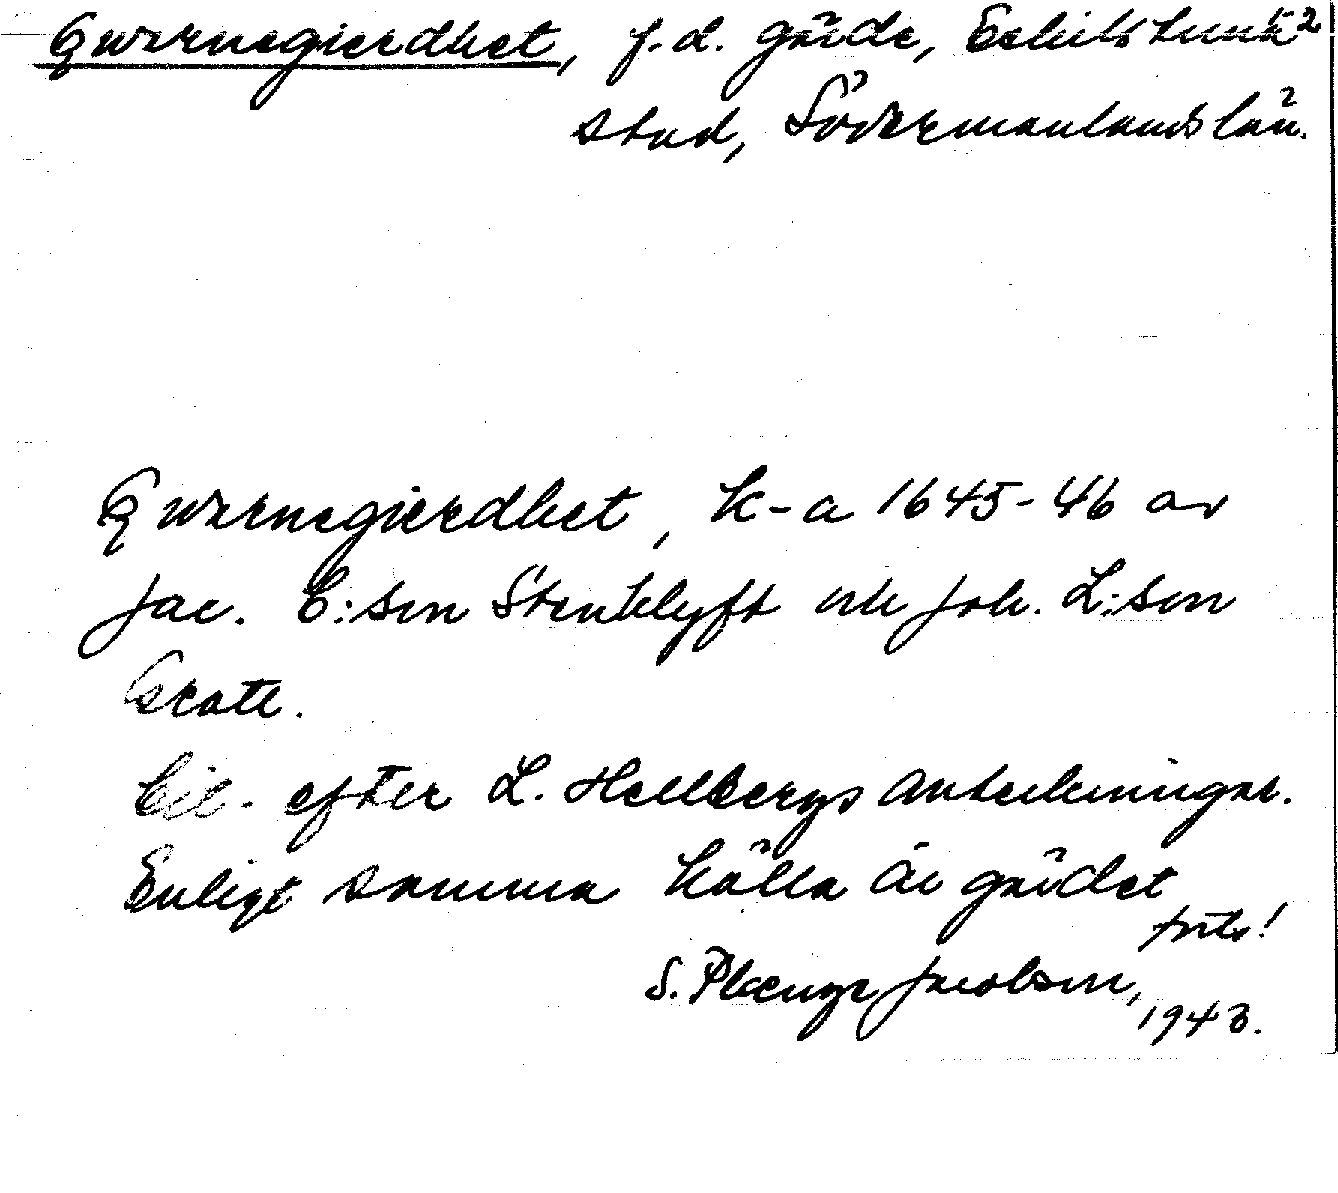 Qwarnegierdhet, f.d. gärde, Eskilstuna
stad, Södermanlands län.
Qwarnegierdhet, k-a 1645-46 av
Jac. C:son Stenklyft och Joh. L:son
Grate.
Cit. efter L. Hellbergs anteckningar.
Enligt samma källa är gärdet
forts!
S. Plænge Jacobson,
1943.